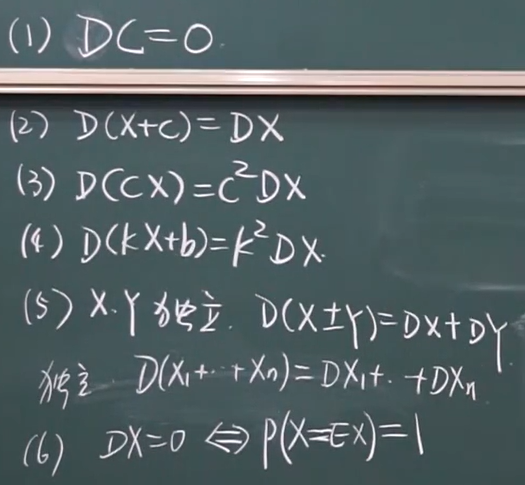 (1) DC=0.
(2) D(X+C)=DX
(3) D(CX)=C²DX
(4) D(kX+b)=k²DX.
(5) X.Y独立. D(X±Y)=DX+DY
独立 D(X₁+‥+Xₙ)=DX₁+‥+DXₙ
(6) DX=0⇔P(X=EX)=1